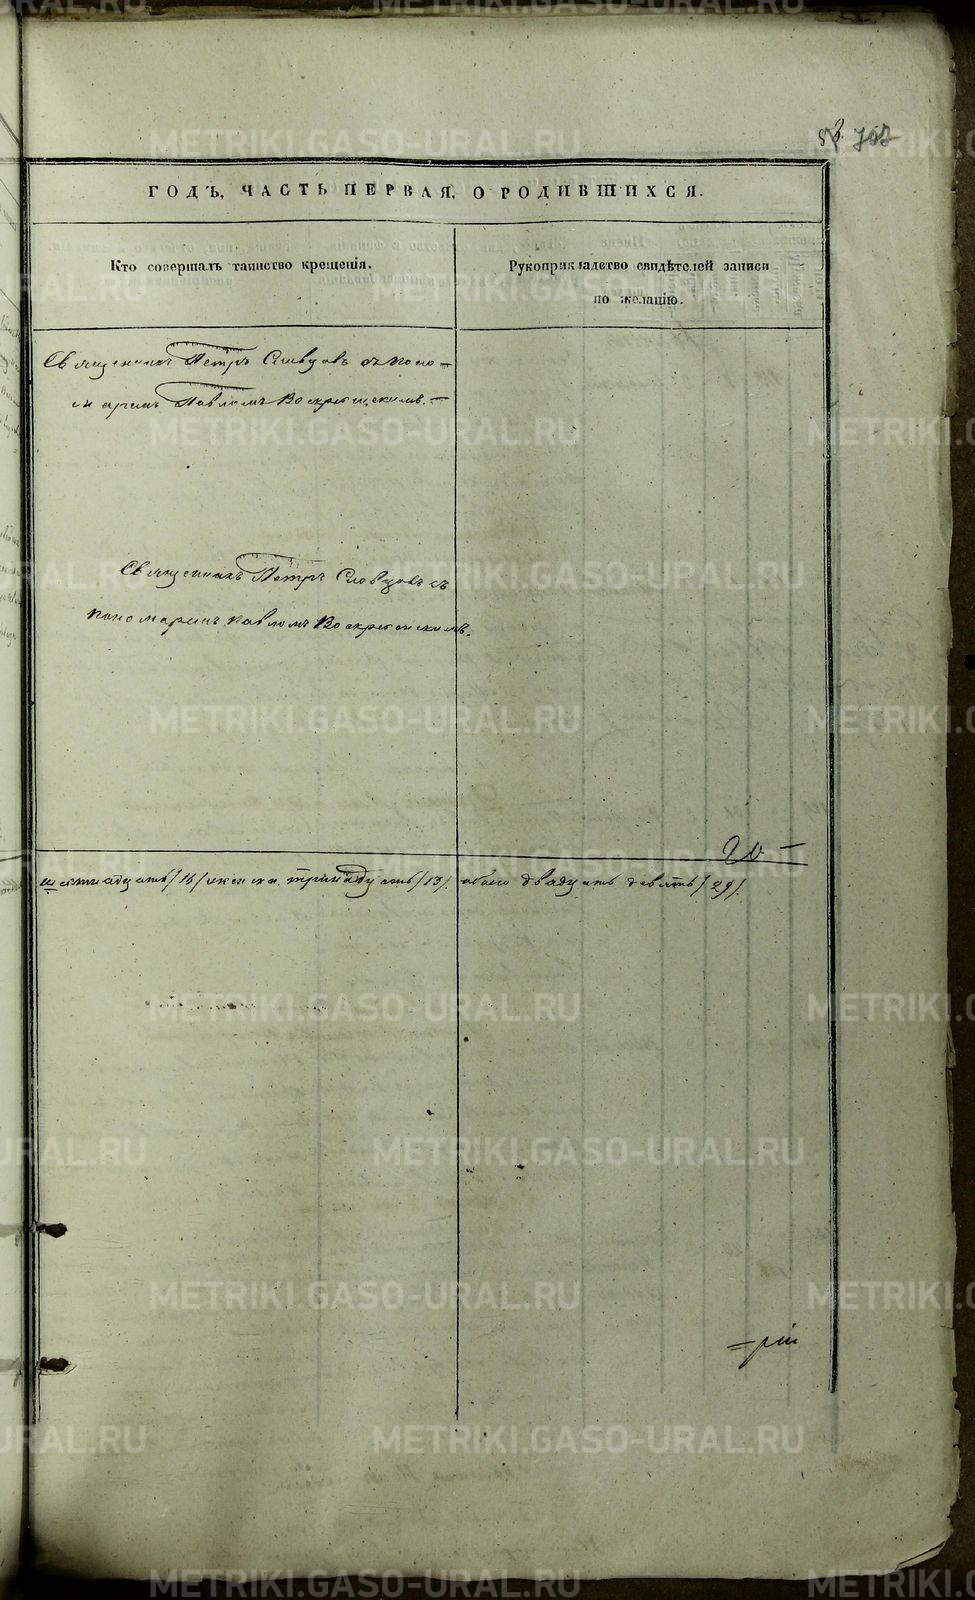 METRIKI.GASO-URAL.RU
702
ГОДЪ, ЧАСТЬ ПЕРВАЯ, О РОДИВШИХСЯ.
Кто совершалъ таинство крещенія.
Рукоприкладство свидѣтелей записи
по желанію.
Священникъ Петръ Словцовъ съ поно-
маремъ Павломъ Воскресенскимъ.
Священникъ Петръ Словцовъ съ
пономаремъ Павломъ Воскресенскимъ.
шестнадцать /16/ женска тринадцать /13/. обоего двадцать девять /29/.